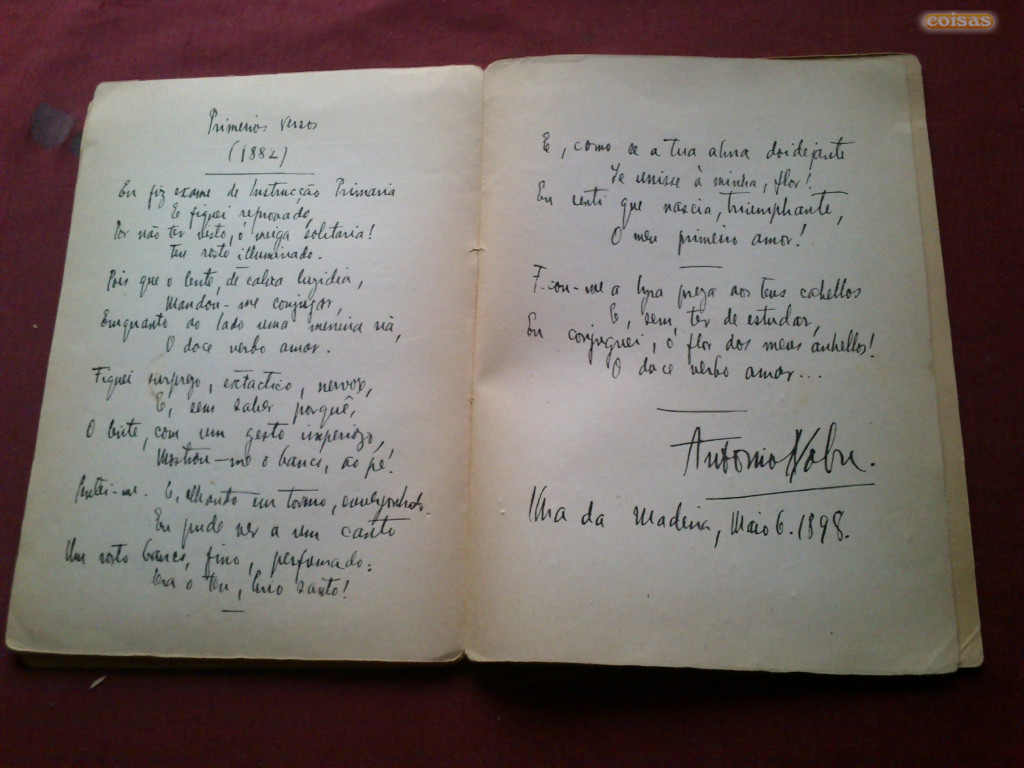 Primeiros versos
(1882)
Eu fiz exame de Instrucção Primaria
E fiquei reprovado,
Por não ter visto, ó meiga solitaria!
Teu rosto illuminado.
Pois que o lente, de calva luzidia,
Mandou-me conjugar,
Emquanto ao lado uma menina
O doce verbo amar.
Fiquei surprezo, extactico, nervoso,
E, sem saber porquê,
O lente, com um gesto imperiozo,
Mostrou-me o banco, ao pé!
Sentei-me. E, olhando em torno, envergonhado,
Eu pude ver a um canto
Um rosto branco, fino, perfumado:
Era o teu, lirio santo!
E, como se a tua alma doidejante
Se unisse à minha, flor!
Eu senti que nascia, triumphante,
O meu primeiro amor!
Ficou-me a lyra preza aos teus cabellos
E, sem ter de estudar,
Eu conjuguei, ó flor dos meus anhellos!
O doce verbo amar...
Antonio Nobre.
Ilha da Madeira, Maio 6. 1898.
coisas